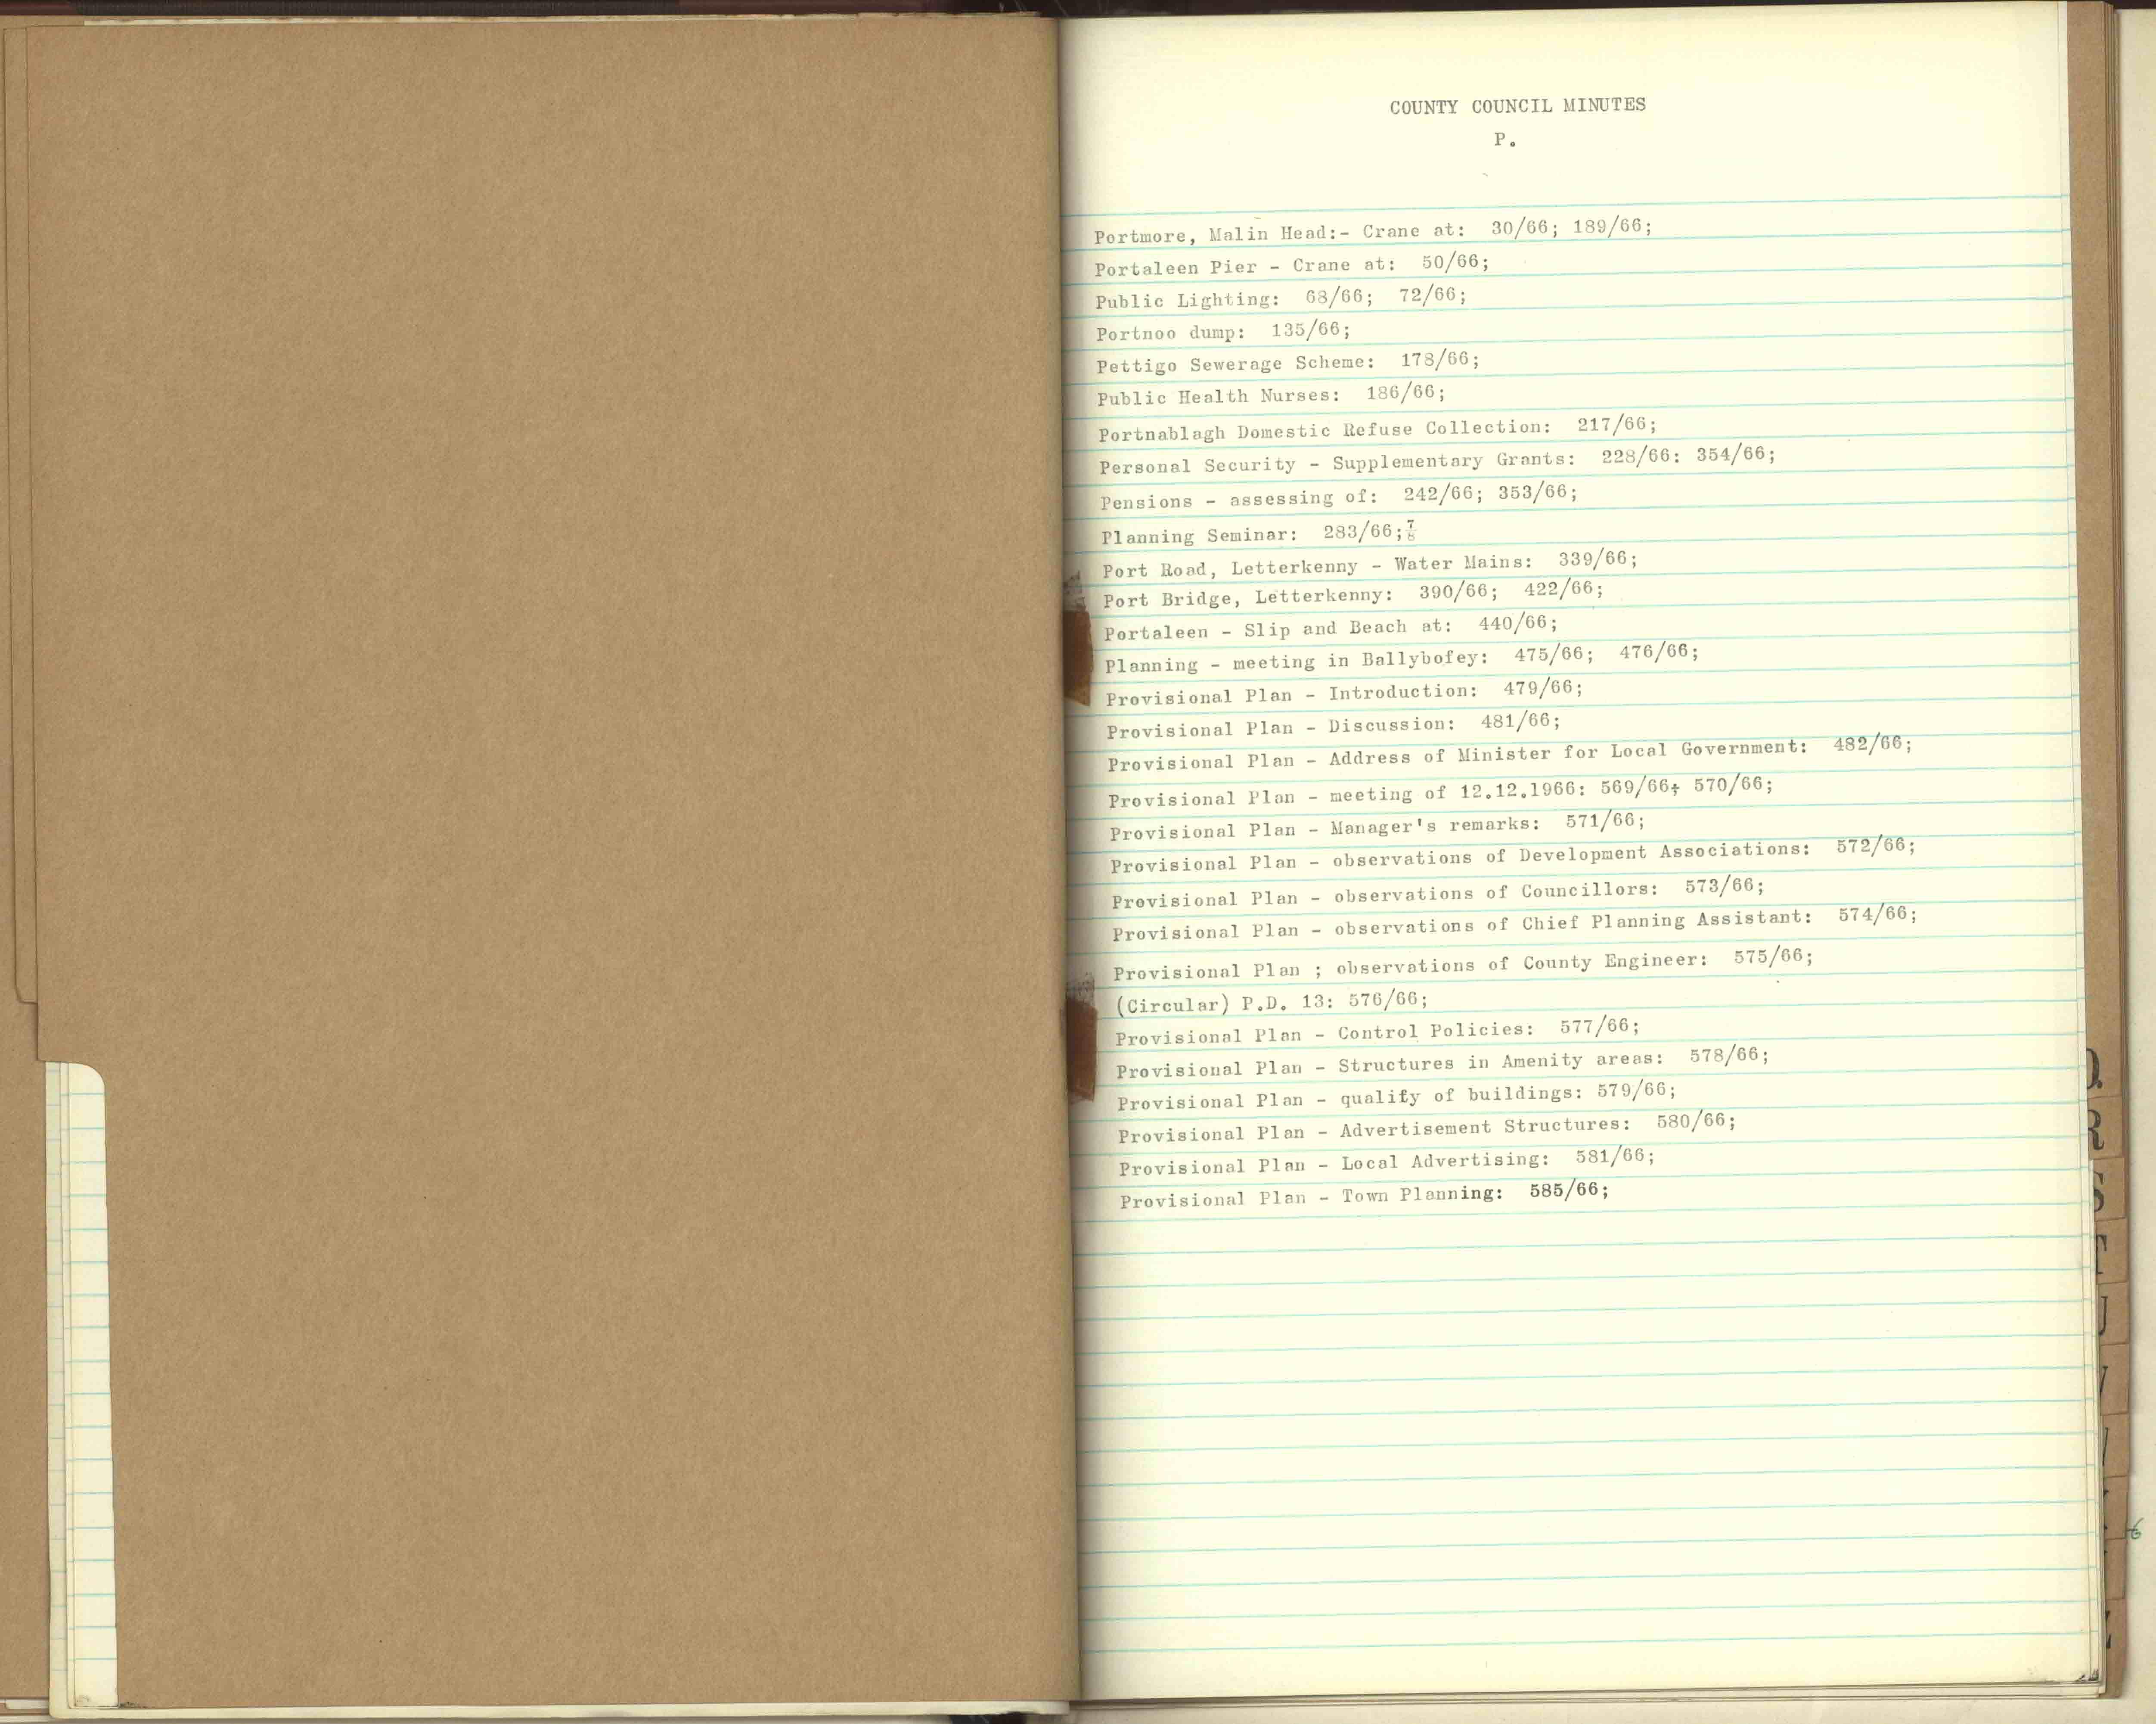 COUNTY COUNCIL MINUTES
P.
Portmore, Malin Head:- Crane at: 30/66; 189/66;
Portaleen Pier - Crane at: 50/66;
Public Lighting: 68/66; 72/66;
Portnoo dump: 135/66;
Pettigo Sewerage Scheme: 178/66;
Public Health Nurses: 186/66;
Portnablagh Domestic Refuse Collection: 217/66;
Personal Security - Supplementary Grants: 228/66: 354/66;
Pensions - assessing of: 242/66; 353/66;
Planning Seminar: 283/66;⅞
Port Road, Letterkenny - Water Mains: 339/66;
Port Bridge, Letterkenny: 390/66; 422/66;
Portaleen - Slip and Beach at: 440/66;
Planning - meeting in Ballybofey: 475/66; 476/66;
Provisional Plan - Introduction: 479/66;
Provisional Plan - Discussion: 481/66;
Provisional Plan - Address of Minister for Local Government: 482/66;
Provisional Plan - meeting of 12.12.1966: 569/66; 570/66;
Provisional Plan - Manager's remarks: 571/66;
Provisional Plan - observations of Development Associations: 572/66;
Provisional Plan - observations of Councillors: 573/66;
Provisional Plan - observations of Chief Planning Assistant: 574/66;
Provisional Plan ; observations of County Engineer: 575/66;
(Circular) P.D. 13: 576/66;
Provisional Plan - Control Policies: 577/66;
Provisional Plan - Structures in Amenity areas: 578/66;
Provisional Plan - quality of buildings: 579/66;
Provisional Plan - Advertisement Structures: 580/66;
Provisional Plan - Local Advertising: 581/66;
Provisional Plan - Town Planning: 585/66;
R
S
T
U